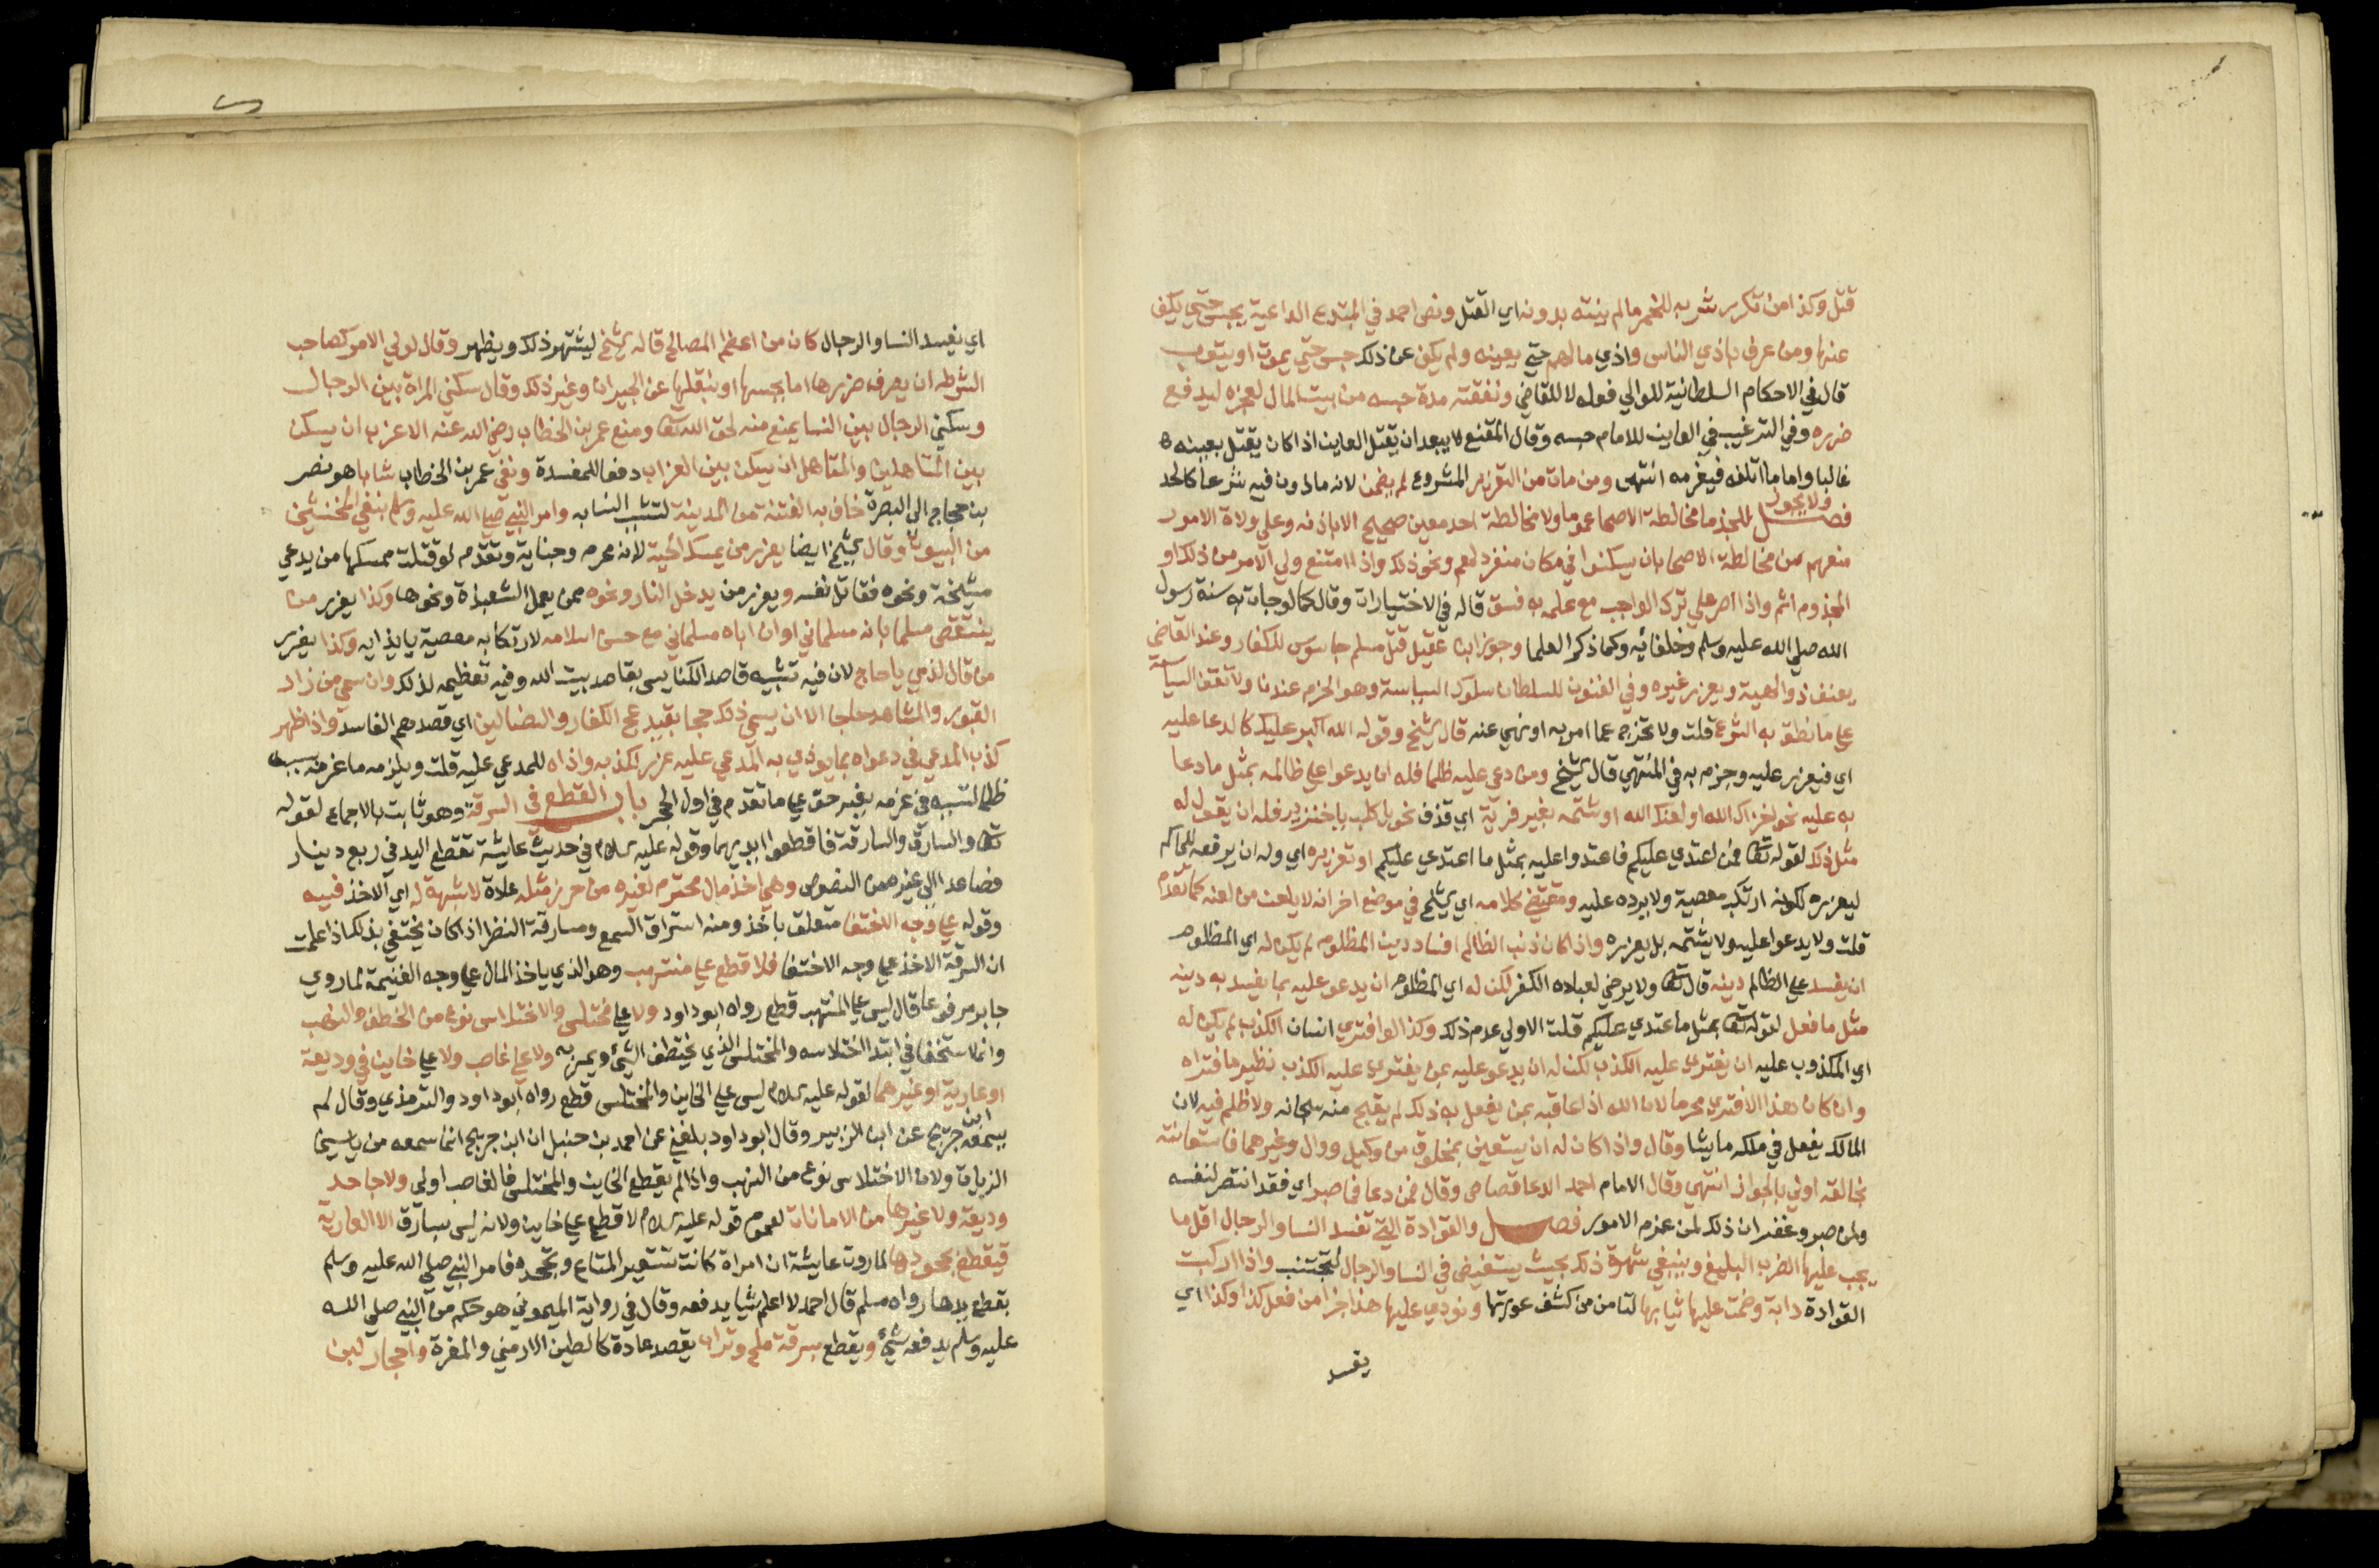 قتل وكذا من تكرر شربه للخمر ما لم ينته بدونه اي القتل ونص احمد في المبتدع الداعية يحبس حتي يكف
عنها ومن عرف باذي الناس واذي مالهم حتي بعينه ولم يكف عن ذلك حبس حتي يموت او يتوب
قال في الاحكام السلطانية للوالي فعله لا للقاضي ونفقته مدة حبسه من بيت المال لعجزه ليدفع
ضرره وفي الترغيب في العاين للامام حبسه وقال المقنع لا يبعد ان يقتل العاين اذا كان يقتل بعينه
غالبا واما ما اتلفه فيغرمه انتهي ومن مات من التعزير المشروع لم يضمن لانه ماذون فيه شرعا كالحد
فصل ولا يجوز للجذما مخالطة الاصحا عموما ولا مخالطة احد معين صحيح الا باذنه وعلي ولاة الامور
منعهم من مخالطة الاصحا بان يسكنوا في مكان منفرد لهم ونحو ذلك واذا امتنع ولي الامر من ذلك او
المجذوم اثم واذا اصر علي ترك الواجب مع علمه به فسق قاله في الاختيارات وقال كما لو جات به سنة رسول
الله صلي الله عليه وسلم وخلفائه وكما ذكر العلما وجوز ابن عقيل قتل مسلم جاسوس للكفار وعند القاضي
يعنف ذو الهيبة ويعزر غيره وفي الفنون للسلطان سلوك السياسة وهو الحزم عندنا ولا تقف السياسة
علي ما نطق به الشرع قلت ولا تخرج عما امر به او نهي عنه قال الشيخ وقوله الله اكبر عليك كالدعا عليه
اي فيعزر عليه وجزم به في المنتهي قال الشيخ ومن دعي عليه ظلما فله ان يدعوا علي ظالمه بمثل ما دعا
به عليه نحو اخزاك الله او لعنك الله او شتمه بغير فرية اي قذف نحو يا كلب يا خنزير فله ان يقول له
مثل ذلك لقوله تعا فمن اعتدي عليكم فاعتدوا عليه بمثل ما اعتدي عليكم او تعزيره اي وله ان يرفعه للحاكم
ليعزره لكونه ارتكب معصية ولا يرده عليه ومقتضي كلامه اي الشيخ في موضع اخر انه لا يلعن من لعنه كما تقدم
قلت ولا يدعوا عليه ولا يشتمه بل يعزره واذا كان ذنب الظالم افساد دين المظلوم لم يكن له اي المظلوم
ان يفسد علي الظالم دينه قال تعا ولا يرضي لعباده الكفر لكن له اي المظلوم ان يدعو عليه بما يفسد به دينه
مثل ما فعل لقوله تعا بمثل ما اعتدي عليكم قلت الاولي عدم ذلك وكذا لو افتري انسان الكذب لم يكن له
اي المكذوب عليه ان يفتري عليه الكذب لكن له ان يدعو عليه بمن يفتري عليه الكذب نظير ما افتراه
وان كان هذا الافتري محرما لان الله اذا عاقبه بمن يفعل به ذلك لم يقبح منه سبحانه ولا ظلم فيه لان
المالك يفعل في ملكه ما يشا وقال واذا كان له ان يستعين بمخلوق من وكيل ووال وغيرهما فاستعانته
بخالقه اولي بالجواز انتهي وقال الامام احمد الدعا قصاص وقال فمن دعا فما صبر اي فقد انتصر لنفسه
ولمن صبر وغفر ان ذلك لمن عزم الامور فصل والقوادة التي تفسد النسا والرجال اقل ما
يجب عليها الضرب البليغ وينبغي شهرة ذلك بحيث يستفيض في النسا والرجال لتجتنب واذا اركبت
القوادة دابة وضمت عليها ثيابها لتامن من كشف عورتها ونودي عليها هذا جزا من فعل كذا وكذا اي
يفسد
اي يفسد النسا والرجال كان من اعظم المصالح قاله الشيخ ليشتهر ذلك ويظهر وقال لولي الامر كصاحب
الشرطة ان يعرف ضررها اما بحبسها او بنقلها عن الجيران وغير ذلك وقال سكني المراة بين الرجال
وسكني الرجال بين النسا يمنع منه لحق الله تعا ومنع عمر بن الخطاب رضي الله عنه الاعزب ان يسكن
بين المتاهلين والمتاهل ان يسكن بين العزاب دفعا للمفسدة ونفي عمر بن الخطاب شابا هو نصر
بن حجاج الي البصرة خاف به الفتنة من المدينة لتشبب النسا به وامر النبي صلي الله عليه وسلم بنفي المخنثين
من البيوت وقال الشيخ ايضا يعزر من يمسك الحية لانه محرم وجناية وتقدم لو قتلت ممسكها من يدعي
مشيخة ونحوه فقاتل نفسه ويعزر من يدخل النار ونحوه ممن يعمل الشعبذة ونحوها وكذا يعزر من
ينتقص مسلما بانه مسلماني او ان اباه مسلماني مع حسن اسلامه لارتكابه معصية بايذايه وكذا يعزر
من قال لذمي يا حاج لان فيه تشبيه قاصد الكنايس بقاصد بيت الله وفيه تعظيمه لذلك وان سمي من زار
القبور والمشاهد حاجا الا ان يسمي ذلك حجا بقيد كحج الكفار والضالين اي قصدهم الفاسد واذا ظهر
كذب المدعي في دعواه بما يوذي به المدعي عليه عزر لكذبه واذاه للمدعي عليه قلت ويلزمه ما غرمه بسببه
ظلما لتسببه في غرمه بغير حق علي ما تقدم في اول الحجر باب القطع في السرقة وهو ثابت بالاجماع لقوله
تعا والسارق والسارقة فاقطعوا ايديهما وقوله عليه السلام في حديث عايشة تقطع اليد في ربع دينار
فصاعدا الي غيره من النصوص وهي اخذ مال محترم لغيره من حرز مثله عادة لا شبهة له اي الاخذ فيه
وقوله علي وجه الاختفا متعلق باخذ ومنه استراق السمع ومسارقة النظر اذا كان يختفي بذلك اذا علمت
ان السرقة الاخذ علي وجه الاختفا فلا قطع علي منتهب وهو الذي ياخذ المال علي وجه الغنيمة لما روي
جابر مرفوعا قال ليس علي المنتهب قطع رواه ابو داود ولا علي مختلس والاختلاس نوع من الخطف والنهب
وانما استخفا في ابتدا اختلاسه والمختلس الذي يختطف الشيء ويمر به ولا علي غاصب ولا علي خاين في وديعة
او عارية او غيرهما لقوله عليه السلام ليس علي الخاين والمختلس قطع رواه ابو داود والترمذي وقال لم
يسمعه ابن جريج عن ابي الزبير وقال ابو داود بلغني عن احمد بن حنبل ان ابن جريج انما سمعه من ياسين
الزيات ولان الاختلاس نوع من النهب واذا لم يقطع الخاين والمختلس فالغاصب اولي ولا جاحد
وديعة ولا غيرها من الامانات لعموم قوله عليه السلام لا قطع علي خاين ولانه ليس بسارق الا العارية
فيقطع بجحودها لما روت عايشة ان امراة كانت تستعير المتاع وتجحده فامر النبي صلي الله عليه وسلم
بقطع يدها رواه مسلم قال احمد لا اعلم شيا يدفعه وقال في رواية الميموني هو حكم من النبي صلي الله
عليه وسلم يدفعه شيء ويقطع بسرقة ملح وتراب يقصد عادة كالطين الارمني والمغرة واحجار لبن